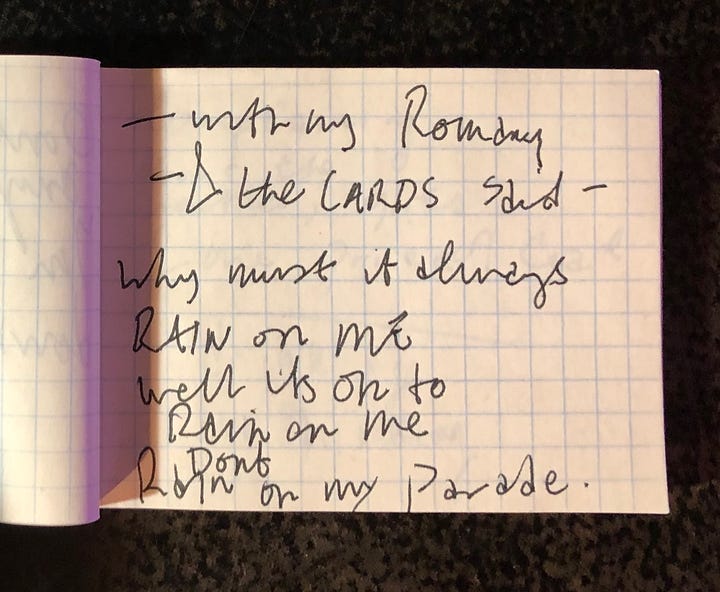 — with my
— the CARDS said —
why must it always
RAIN on ME
well its ok to
Rain on me
Dont
RAIN on my Parade.